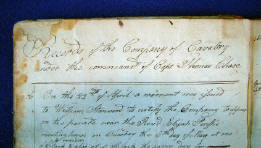 Records of the Company of Cavalry
under the command of Capt Thomas Chase
On the 22nd of April a warrant was issued
to William Stanwood to notify the Company to appear
on the parade near the Revd Elijah
meeting house on Monday the 5th day of May at one